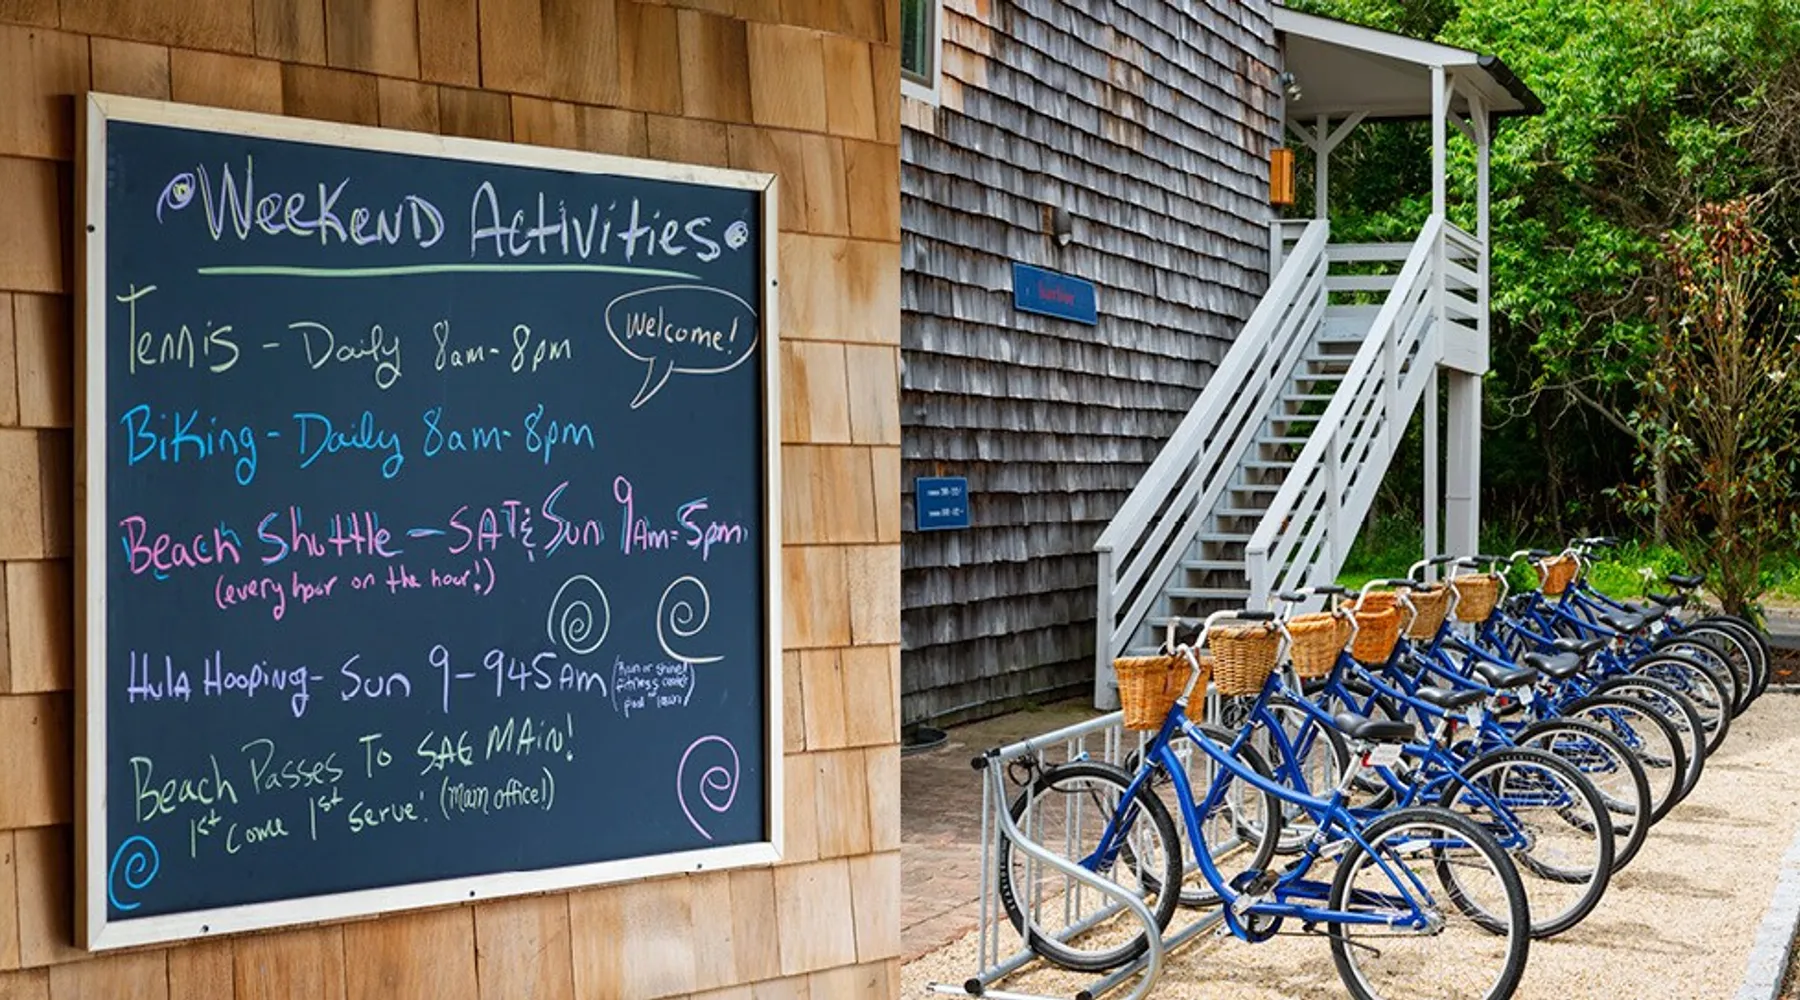 Weekend Activities
Welcome!
Tennis - Daily 8am-8pm
Biking - Daily 8am-8pm
Beach Shuttle - SAT & Sun 9Am-5pm
(every hour on the hour!)
Hula Hooping - Sun 9-945Am
(Rain or shine!
fitness center
pool lawn)
Beach Passes To SAG MAin!
1st Come 1st Serve! (Main office!)
harbor